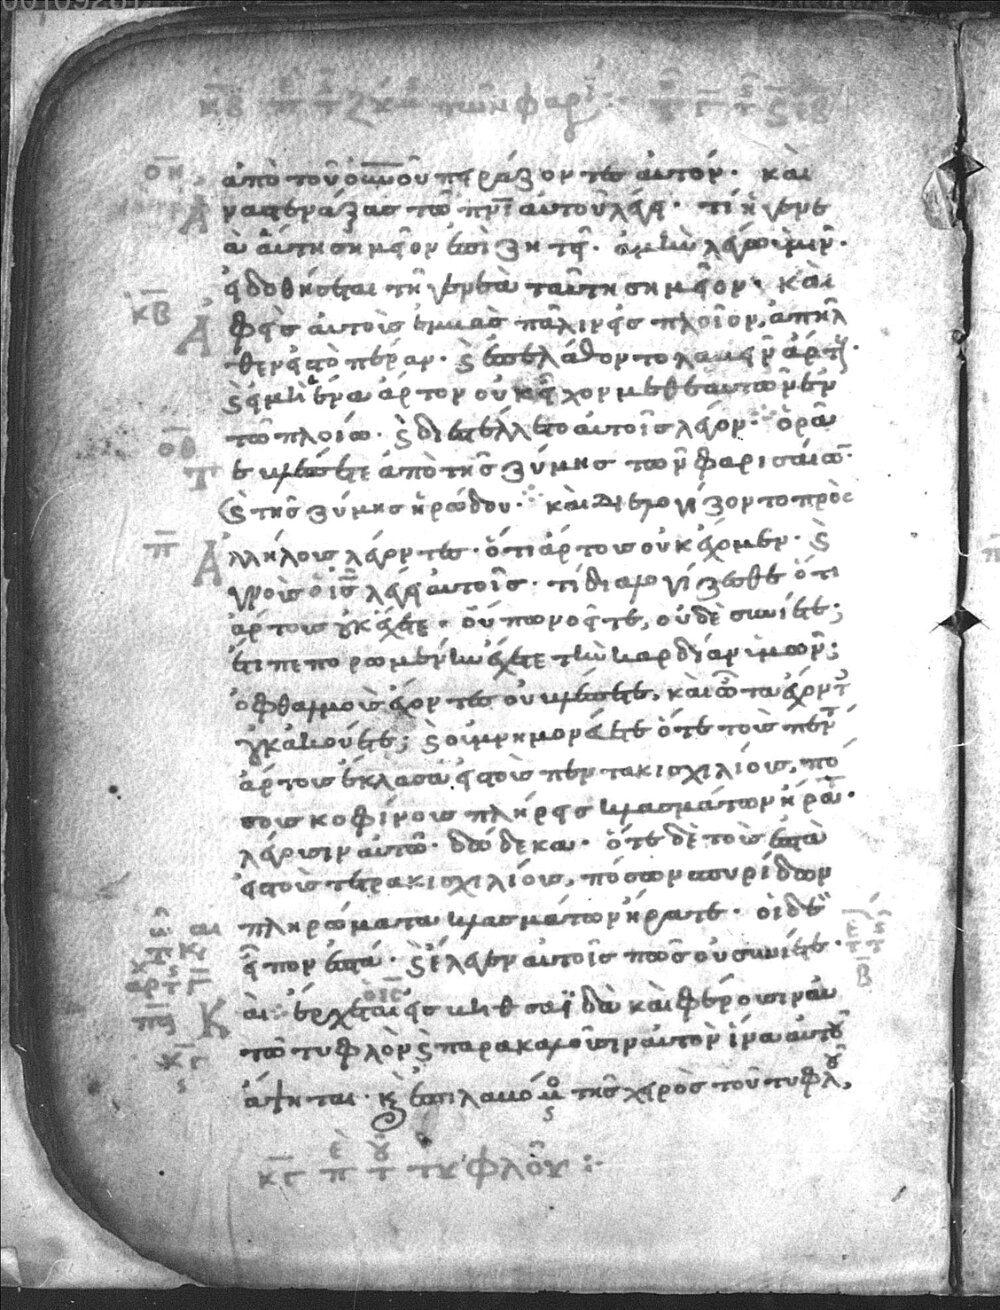 κβ π τ ζύμης τῶν φαρι
οη
ἀπὸ τοῦ οὐνοῦ πειράζοντες αὐτόν· καὶ
Ἀναστενάξας τῶ πνι αὐτοῦ λέγει· τί ἡ γενε
ὰ αὕτη σημεῖον ἐπιζητεῖ· ἀμὴν λέγω ὑμῖν·
εἰ δοθήσεται τῆ γενεᾶ ταύτη σημεῖον· καὶ
κβ
Ἀφεὶς αὐτοὺς ἐμβὰς πάλιν εἰς πλοῖον, ἀπῆλ
θεν εἰς τὸ πέραν· ϛ ἐπελάθοντο λαβεῖν ἄρτους·
ϛ εἰ μὴ ἕνα ἄρτον οὐκ εἶχον μεθ' ἑαυτῶν ἐν
τῶ πλοίω· ϛ διεστέλλετο αὐτοῖς λέγων· ὁρᾶ
οθ
τε βλέπετε ἀπὸ τῆς ζύμης τῶν φαρισαίων
ϛ τῆς ζύμης ἡρώδου· καὶ διελογίζοντο πρὸς
π
Ἀλλήλους λέγοντες· ὅτι ἄρτους οὐκ ἔχομεν· ϛ
γνοὺς ὁ ις λέγει αὐτοῖς· τί διαλογίζεσθε ὅτι
ἄρτους οὐκ ἔχετε· οὔπω νοεῖτε, οὐδὲ συνίετε;
ἔτι πεπορωμένην ἔχετε τὴν καρδίαν ὑμῶν;
ὀφθαλμοὺς ἔχοντες οὐ βλέπετε, καὶ ὦτα ἔχοντ
οὐκ ἀκούετε; ϛ οὐ μνημονεύετε ὅτε τοὺς πεν
ἄρτους ἔκλασα εἰς τοὺς πεντακισχιλίους, πό
σους κοφίνους πλήρεις κλασμάτων ἤρατε·
λέγουσιν αὐτῶ· δώδεκα· ὅτε δὲ τοὺς ἑπτὰ
εἰς τοὺς τετρακισχιλίους, πόσων σπυρίδων
πληρώματα κλασμάτων ἤρατε· οἱ δὲ
εἶπον ἑπτά· ϛ ἔλεγεν αὐτοῖς πῶς οὐ συνίετε·
πα
Καὶ ἔρχεται ὁ ις εἰς βηθσαϊδὰ καὶ φέρουσιν αὐ
κγ
τῶ τυφλὸν ϛ παρακαλοῦσιν αὐτὸν ἵνα αὐτοῦ
ἅψηται· κ ἐπιλαβόμ τῆς χειρὸς τοῦ τυφλ,
κγ π τ τυφλοῦ :-